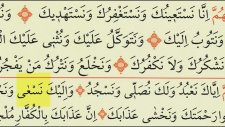 هُمَّ إِنَّا نَسْتَعِينُكَ وَنَسْتَغْفِرُكَ وَنَسْتَهْدِيكَ
وَنَتُوبُ إِلَيْكَ وَنَتَوَكَّلُ عَلَيْكَ وَنُثْنِي عَلَيْكَ
نَشْكُرُكَ وَلَا نَكْفُرُكَ وَنَخْلَعُ وَنَتْرُكُ مَنْ يَفْجُرُ
إِيَّاكَ نَعْبُدُ وَلَكَ نُصَلِّي وَنَسْجُدُ وَإِلَيْكَ نَسْعٰى
وَرَحْمَتَكَ وَنَخْشٰى عَذَابَكَ إِنَّ عَذَابَكَ بِالْكُفَّارِ